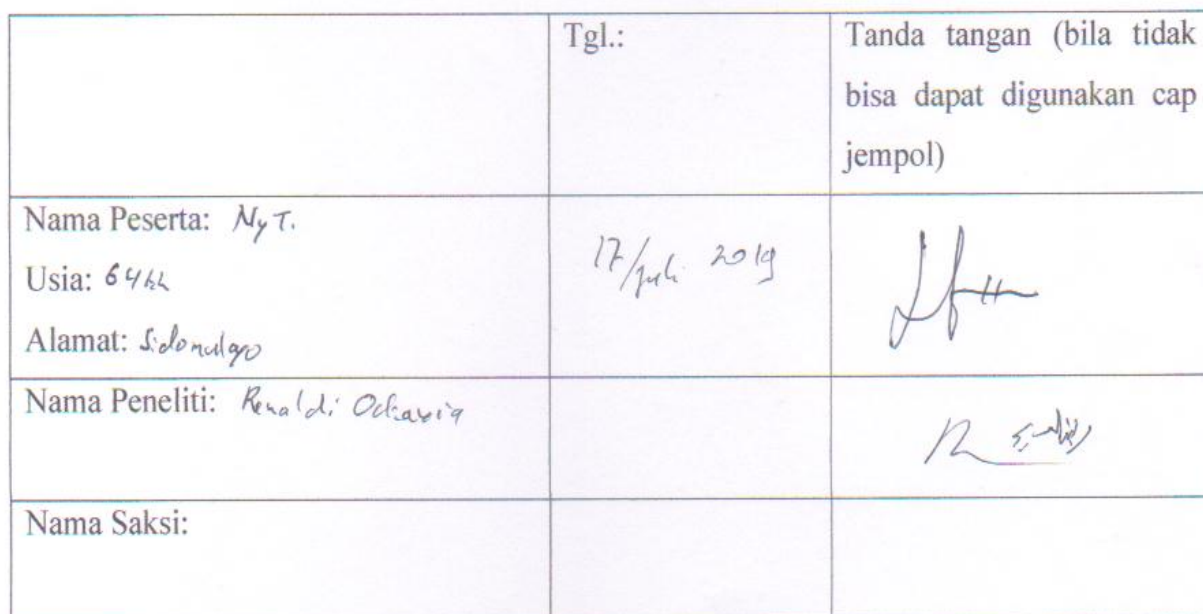 Tgl.:
Tanda tangan (bila tidak
bisa dapat digunakan cap
jempol)
Nama Peserta: Ny T.
Usia: 64
Alamat: Sidomulyo
17/juli 2019
Nama Peneliti: Renaldi Octavia
Nama Saksi: